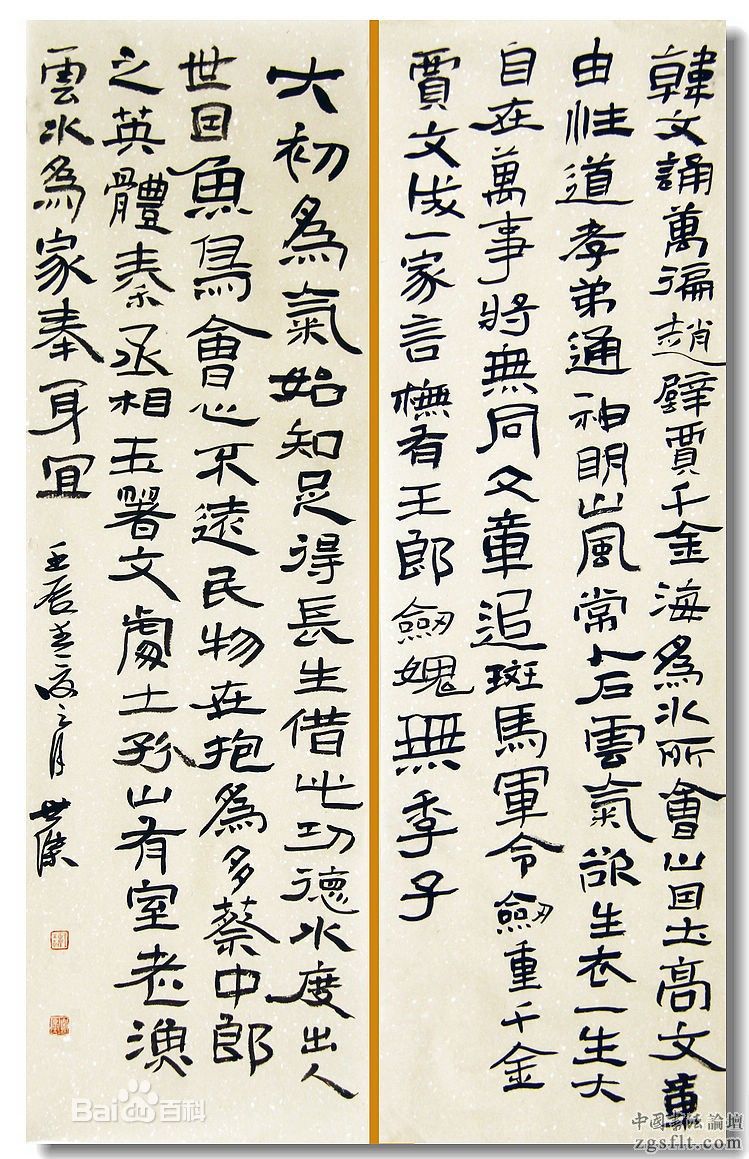 韓文誦萬徧趙璧賈千金海為水所會山因土高文章
由性道孝弟通神明山風常人石雲氣欲生衣一生大
自在萬事將無同文章追斑馬軍令劔重千金
賈文成一家言櫵有王郎劔媿無季子
大初為氣始知足得長生借此功德水度出人
世因魚鳥會心不遠民物在抱為多蔡中郎
之英體秦丞相玉署文處士形山有室老漁
雲水為家奉身宜
壬辰 月世傑
Bai 百科
中国书法論壇
zgsflt.com